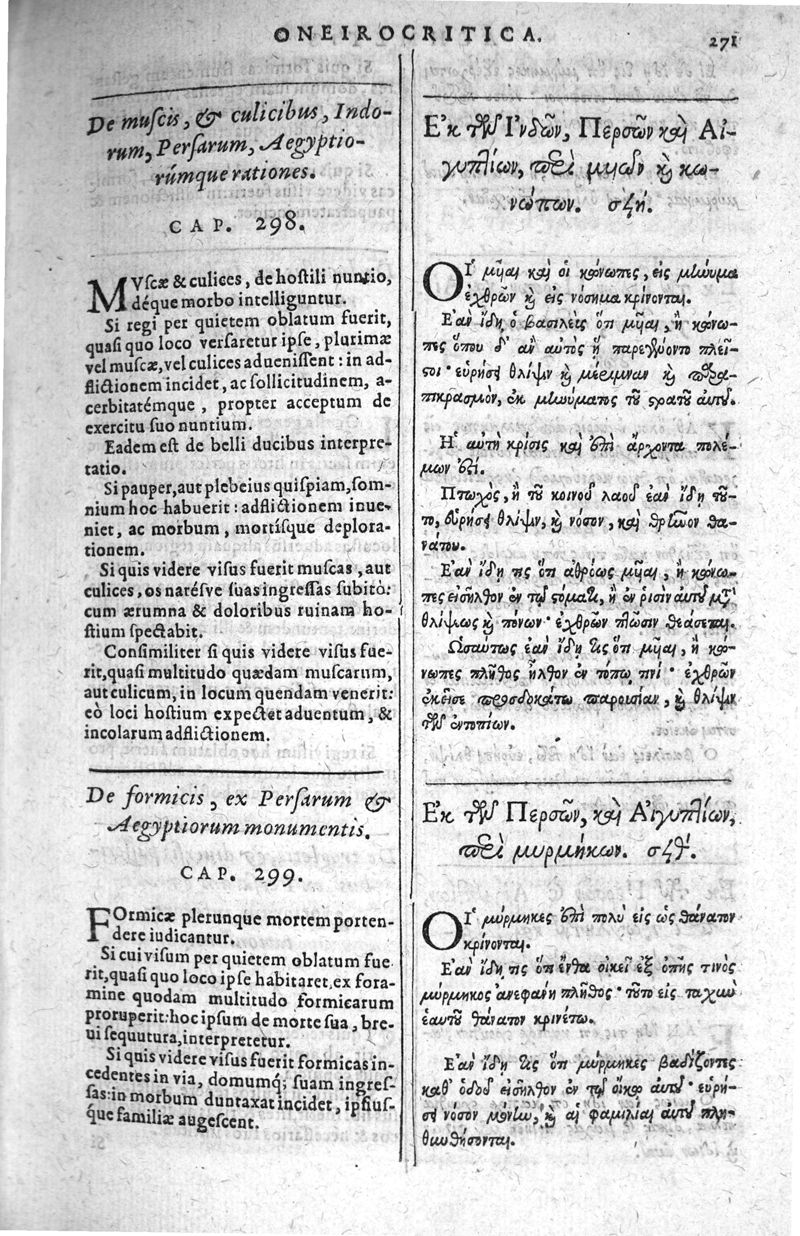 ONEIROCRITICA.
271
De muſcis, & culicibus, Indo-
rum, Perſarum, Aegyptio-
rúmque rationes.
CAP. 298.
MVſcæ & culices, de hoſtili nuntio,
déque morbo intelliguntur.
Si regi per quietem oblatum fuerit,
quaſi quo loco verſaretur ipſe, plurimæ
vel muſcæ, vel culices adueniſſent: in ad-
flictionem incidet, ac ſollicitudinem, a-
cerbitatémque, propter acceptum de
exercitu ſuo nuntium.
Eadem eſt de belli ducibus interpre-
tatio.
Si pauper, aut plebeius quiſpiam, ſom-
nium hoc habuerit: adflictionem inue-
niet, ac morbum, mortíſque deplora-
tionem.
Si quis videre viſus fuerit muſcas, aut
culices, os naréſve ſuas ingreſſas ſubitò:
cum ærumna & doloribus ruinam ho-
ſtium ſpectabit.
Conſimiliter ſi quis videre viſus fue-
rit, quaſi multitudo quædam muſcarum,
aut culicum, in locum quendam venerit:
eò loci hoſtium expectet aduentum, &
incolarum adflictionem.
De formicis, ex Perſarum &
Aegyptiorum monumentis.
CAP. 299.
FOrmicæ plerunque mortem porten-
dere iudicantur.
Si cui viſum per quietem oblatum fue
rit, quaſi quo loco ipſe habitaret, ex fora-
mine quodam multitudo formicarum
proruperit: hoc ipſum de morte ſua, bre-
ui ſequutura, interpretetur.
Si quis videre viſus fuerit formicas in-
cedentes in via, domumq; ſuam ingreſ-
ſas: in morbum duntaxat incidet, ipſiuſ-
que familiæ augeſcent.
Ἐκ τῶν Ἰνδῶν, Περσῶν καὶ Αἰ-
γυπτίων, περὶ μυιῶν καὶ κω-
νώπων. σϟή.
Οἱ μῦιαι καὶ οἱ κώνωπες, εἰς μήνυμα
ἐχθρῶν καὶ εἰς νόσημα κρίνονται.
Ἐὰν ἴδῃ ὁ βασιλεὺς ὅτι μῦιαι, ἢ κώνω-
πες ὅπου δ' ἂν αὐτὸς ᾖ παρεγένοντο πλεῖ-
στοι· εὑρήσει θλίψιν καὶ μέριμναν καὶ παρα-
πικρασμὸν, ἐκ μηνύματος τοῦ στρατοῦ αὐτοῦ.
Ἡ αὐτὴ κρίσις καὶ ἐπὶ ἄρχοντα πολέ-
μων ἐστί.
Πτωχὸς, ἢ τοῦ κοινοῦ λαοῦ ἐὰν ἴδῃ τοῦ-
το, εὑρήσει θλίψιν, καὶ νόσον, καὶ θρῆνον θα-
νάτου.
Ἐὰν ἴδῃ τις ὅτι ἀθρόως μῦιαι, ἢ κώνω-
πες εἰσῆλθον ἐν τῷ στόματι, ἢ ἐν ῥισὶν αὐτοῦ μετὰ
θλίψεως καὶ πόνων· ἐχθρῶν πτῶσιν θεάσεται.
Ὡσαύτως ἐὰν ἴδῃ τις ὅτι μῦιαι, ἢ κώ-
νωπες πλῆθος ἦλθον ἐν τόπῳ τινί· ἐχθρῶν
ἐκεῖσε προσδοκάτω παρουσίαν, καὶ θλίψιν
τῶν ἐντοπίων.
Ἐκ τῶν Περσῶν, καὶ Αἰγυπτίων,
περὶ μυρμήκων. σϟθ'.
Οἱ μύρμηκες ἐπὶ πολὺ εἰς ὡς θάνατον
κρίνονται.
Ἐὰν ἴδῃ τις ὅτι ἔνθα οἰκεῖ ἐξ ὀπῆς τινὸς
μύρμηκος ἀνεφάνη πλῆθος· τοῦτο εἰς ταχινὸν
ἑαυτοῦ θάνατον κρινέτω.
Ἐὰν ἴδῃ τις ὅτι μύρμηκες βαδίζοντες
καθ' ὁδοῦ εἰσῆλθον ἐν τῷ οἴκῳ αὐτοῦ· εὑρή-
σει νόσον μόνον, καὶ αἱ φαμιλίαι αὐτοῦ πλη-
θυνθήσονται.